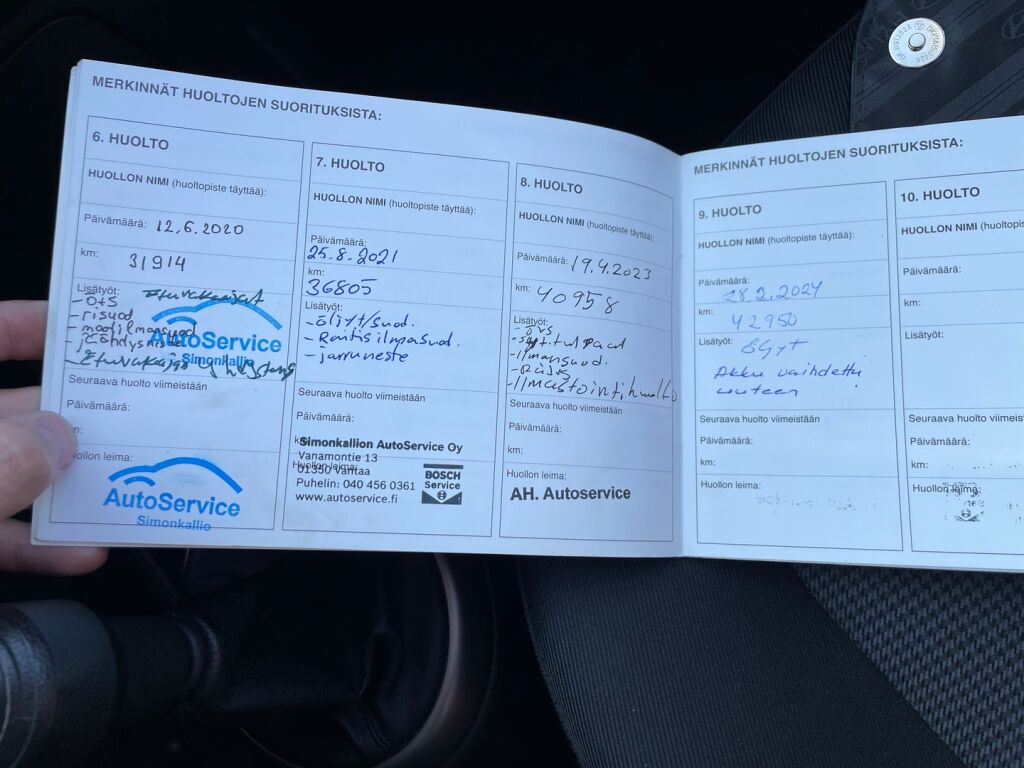 MERKINNÄT HUOLTOJEN SUORITUKSISTA:
6. HUOLTO
HUOLLON NIMI (huoltopiste täyttää):
Päivämäärä: 12.6.2020
km: 31914
Lisätyöt: Etuvakaajat
- Ö+S
- risuod
- moot.ilmansuod
- jäähdysneste
AutoService
Simonkallio
Seuraava huolto viimeistään
Päivämäärä:
km:
Huollon leima:
AutoService
Simonkallio
7. HUOLTO
HUOLLON NIMI (huoltopiste täyttää):
Päivämäärä:
25.8.2021
km:
36805
Lisätyöt:
- öljyt/suod.
- Raitisilmasuod.
- jarruneste
Seuraava huolto viimeistään
Päivämäärä:
km:
Simonkallion AutoService Oy
Vanamontie 13
Huollon leima:
01350 Vantaa
Puhelin: 040 456 0361
www.autoservice.fi
BOSCH
Service
8. HUOLTO
HUOLLON NIMI (huoltopiste täyttää):
Päivämäärä: 19.4.2023
km: 40958
Lisätyöt:
- Ilmansuod.
- Ilmastointihuolto
Seuraava huolto viimeistään
Päivämäärä:
km:
Huollon leima:
AH. Autoservice
MERKINNÄT HUOLTOJEN SUORITUKSISTA:
9. HUOLTO
HUOLLON NIMI (huoltopiste täyttää):
Päivämäärä:
28.2.2024
km:
42950
Lisätyöt:
Akku vaihdettu
uuteen
Seuraava huolto viimeistään
Päivämäärä:
km:
Huollon leima:
10. HUOLTO
HUOLLON NIMI (huoltopiste
Päivämäärä:
km:
Lisätyöt:
Seuraava huolto viimeis
Päivämäärä:
km:
Huollon leima: